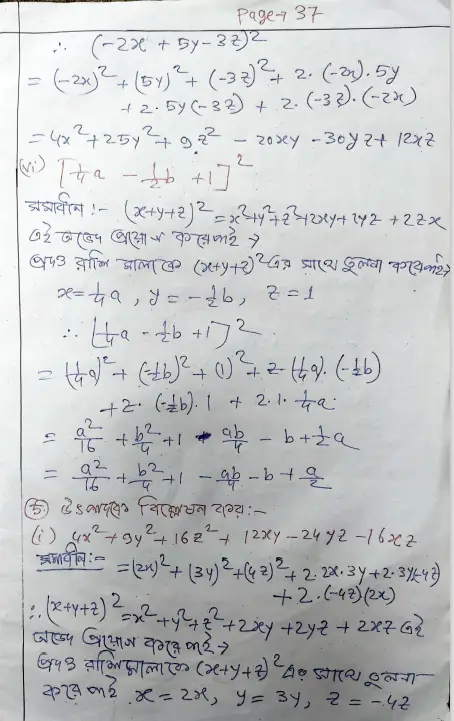 Page→ 37
∴ (-2x + 5y - 3z)²
= (-2x)² + (5y)² + (-3z)² + 2. (-2x). 5y
+ 2. 5y(-3z) + 2. (-3z). (-2x)
= 4x² + 25y² + 9z² - 20xy - 30yz + 12xz
(vi) [¼a - ½b + 1]²
সমাধান :- (x+y+z)² = x²+y²+z²+2xy+2yz + 2zx
এই অভেদ প্রয়োগ করে পাই →
প্রদত্ত রাশি মালাকে (x+y+z)² এর সাথে তুলনা করে পাই→
x = ¼a , y = - ½b , z = 1
∴ [¼a - ½b + 1]²
= (¼a)² + (-½b)² + (1)² + 2. (¼a). (-½b)
+ 2. (-½b). 1 + 2.1. ¼a.
= a²/16 + b²/4 + 1 - ab/4 - b + ½a
= a²/16 + b²/4 + 1 - ab/4 - b + a/2
(5.) উৎপাদকে বিশ্লেষন কর :-
(i) 4x² + 9y² + 16z² + 12xy - 24yz - 16xz
সমাধান :- = (2x)² + (3y)² + (-4z)² + 2. 2x. 3y + 2. 3y(-4z)
+ 2. (-4z)(2x)
∴ (x+y+z)² = x² + y² + z² + 2xy + 2yz + 2xz এই
অভেদ প্রয়োগ করে পাই →
প্রদত্ত রাশিমালাকে (x+y+z)² এর সাথে তুলনা
করে পাই x = 2x, y = 3y, z = -4z